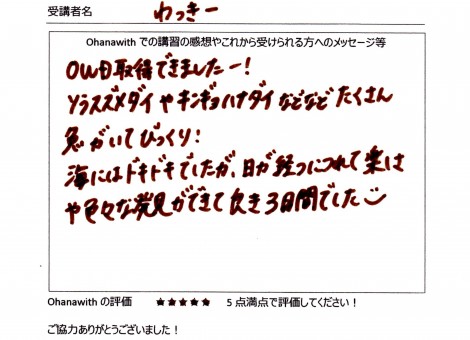 受講者名 わっきー
Ohanawith での講習の感想やこれから受けられる方へのメッセージ等
OWD取得できましたー！
ソラスズメダイやキンギョハナダイなどなどたくさん
魚がいてびっくり！
海にはドキドキでしたが、日が経つにつれて楽しさ
や色々な発見ができて良き3日間でした
Ohanawith の評価 ★★★★★ 5点満点で評価してください！
ご協力ありがとうございました！